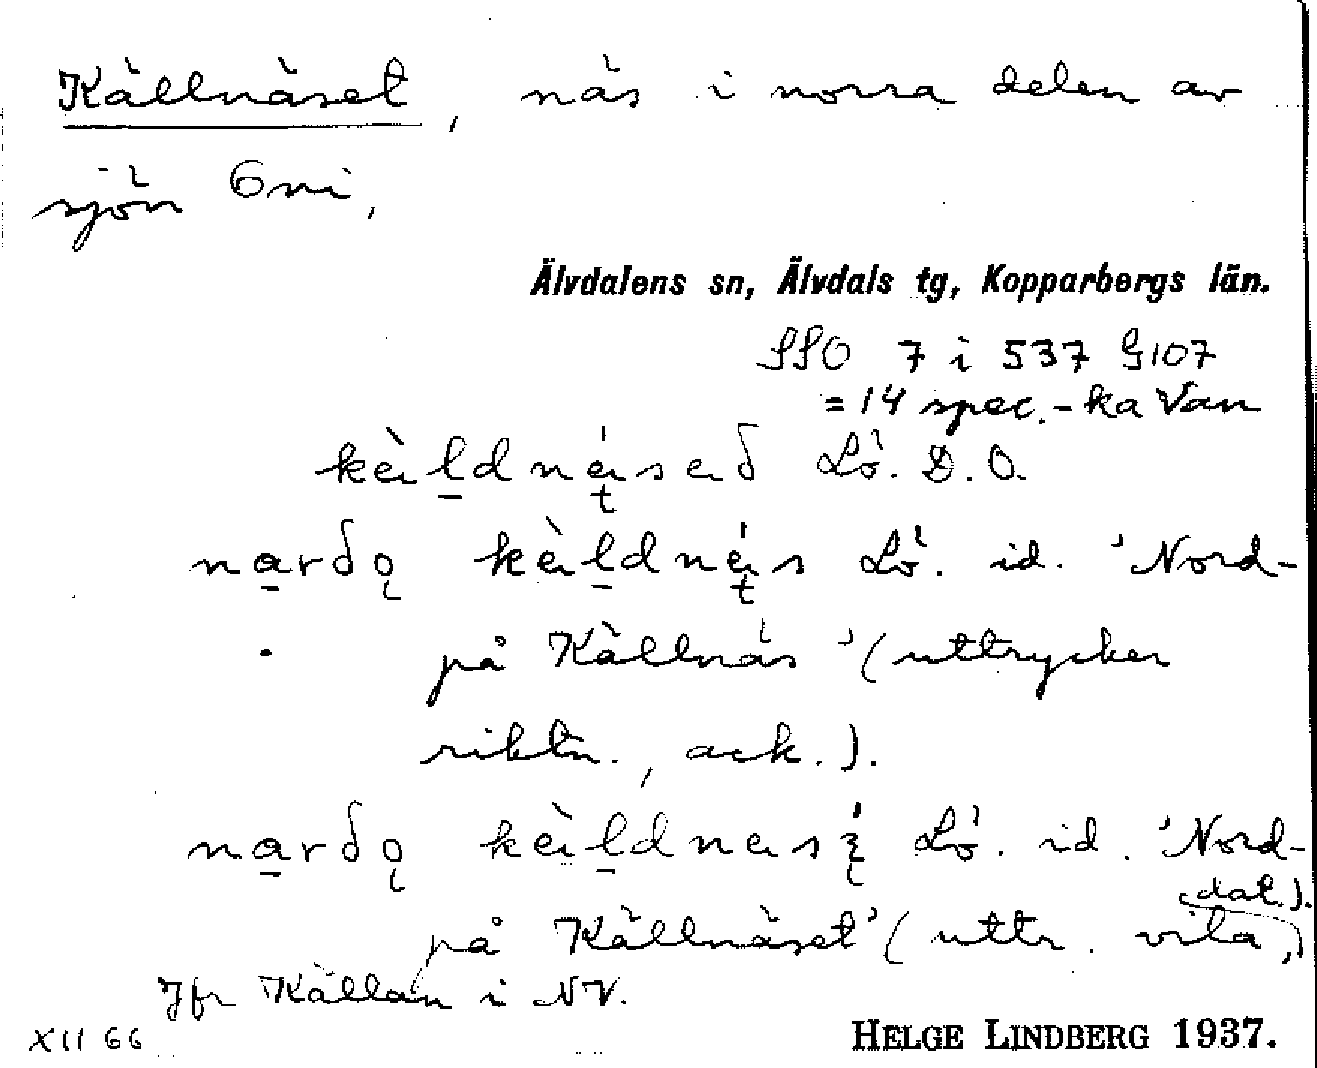 Källnäset, näs i norra delen av
sjön Gni,
Älvdalens sn, Älvdals tg, Kopparbergs län.
SSO 7 i 537 G107
= 14 spec.-ka Van
Lö. D.O.
Lö. id. 'Nord-
på Källnäs' (uttrycker
riktn., ack.).
Lö. id. 'Nord-
på Källnäset' (uttr. vila, dat.).
Jfr Källan i NV.
XII 66
HELGE LINDBERG 1937.